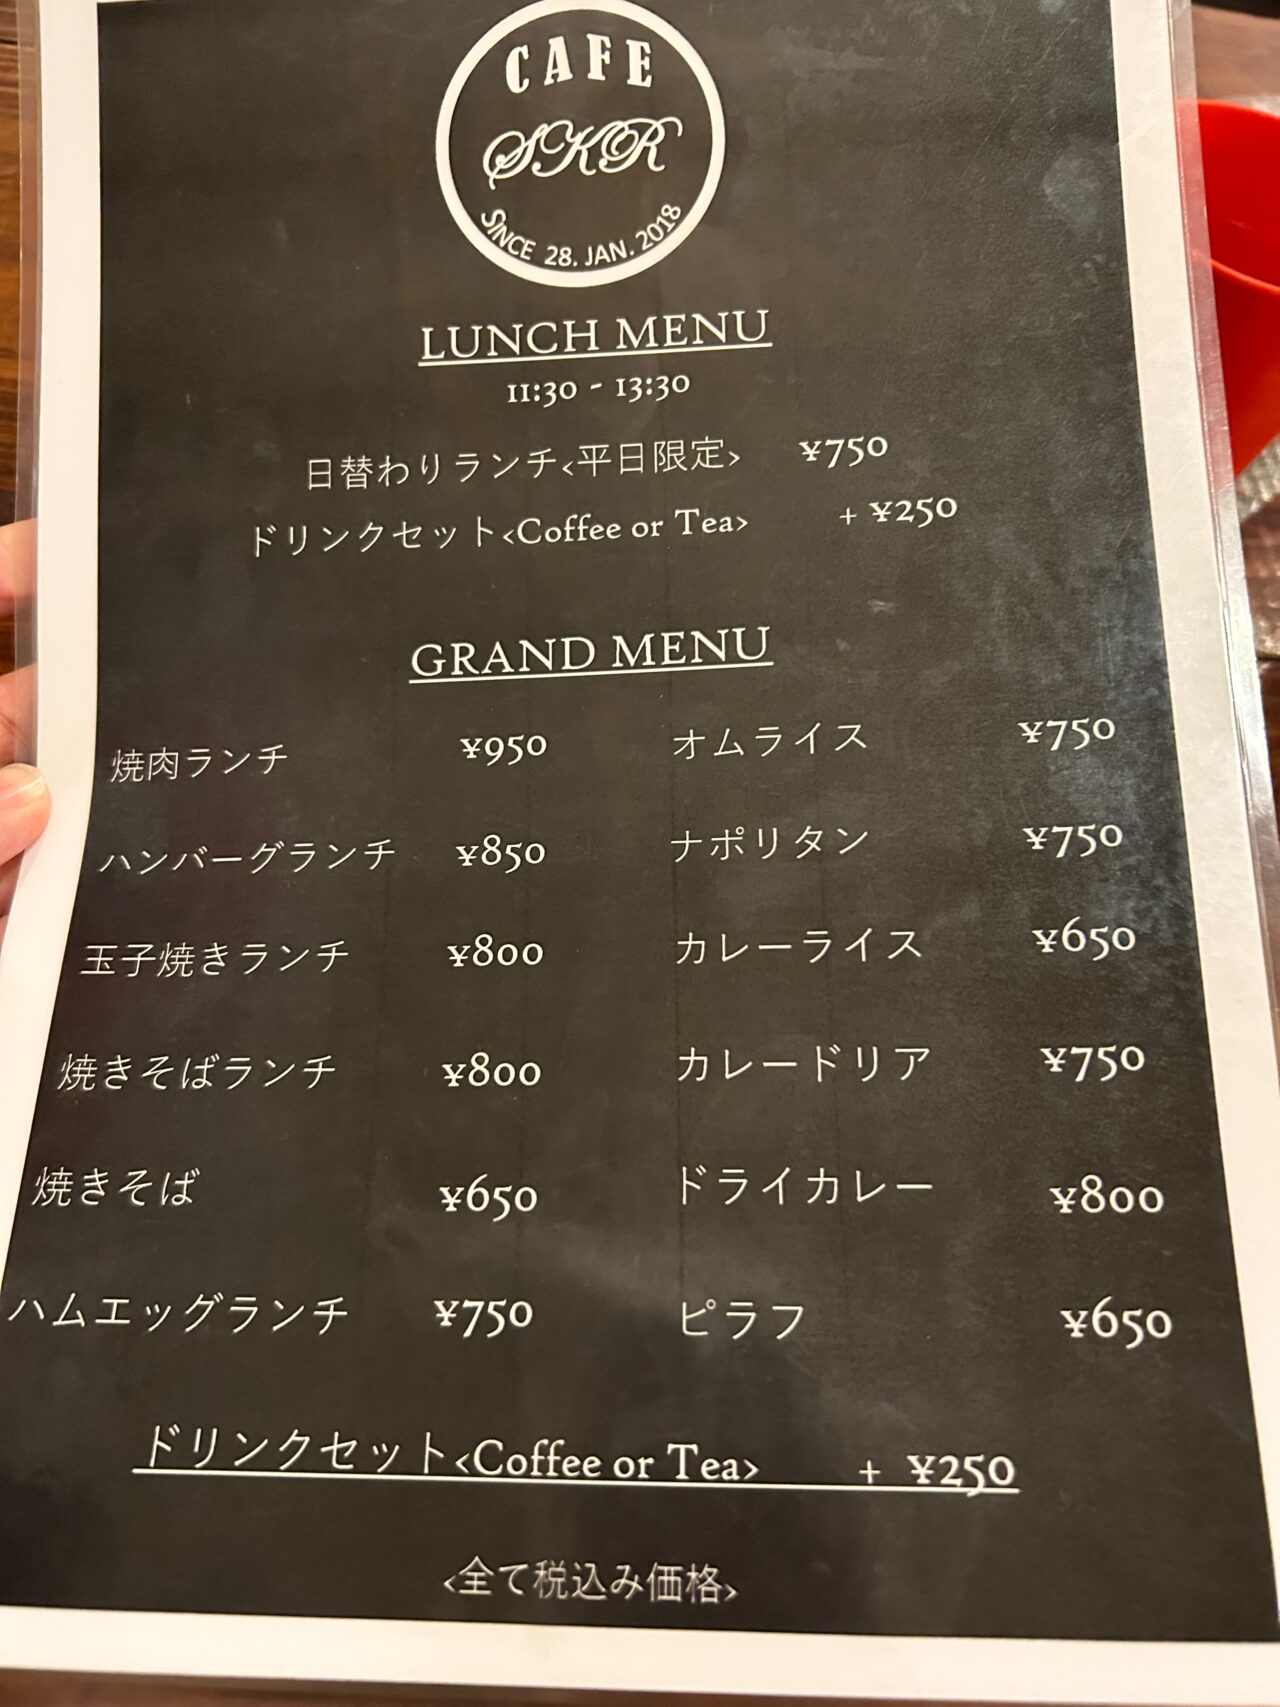 CAFE
SKR
SINCE 28. JAN. 2018
LUNCH MENU
11:30 - 13:30
日替わりランチ<平日限定> ¥750
ドリンクセット<Coffee or Tea> + ¥250
GRAND MENU
焼肉ランチ ¥950
ハンバーグランチ ¥850
玉子焼きランチ ¥800
焼きそばランチ ¥800
焼きそば ¥650
ハムエッグランチ ¥750
オムライス ¥750
ナポリタン ¥750
カレーライス ¥650
カレードリア ¥750
ドライカレー ¥800
ピラフ ¥650
ドリンクセット<Coffee or Tea> + ¥250
<全て税込み価格>